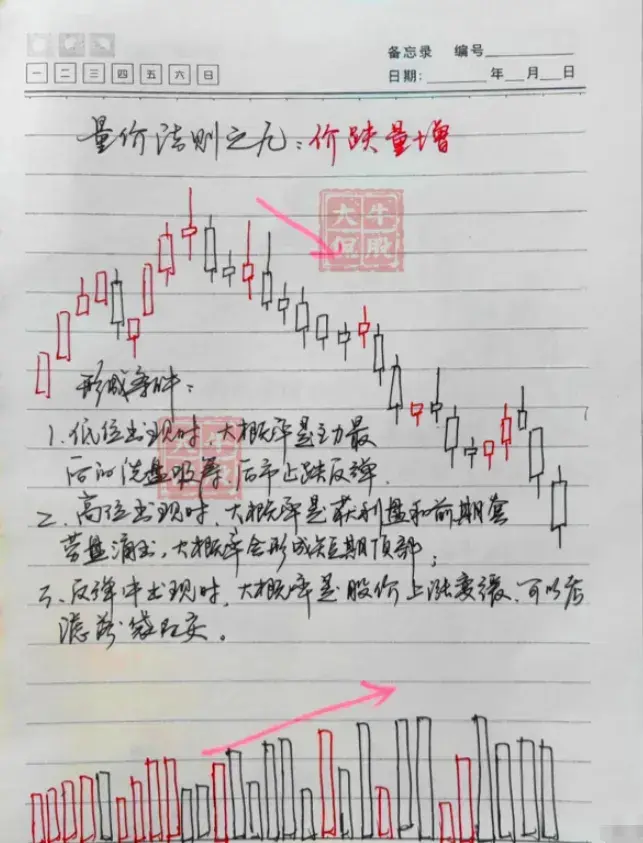 备忘录 编号
一 二 三 四 五 六 日
日期: 年 月 日
量价法则之九：价跌量增
大牛
侃股
形成条件：
1、低位出现时，大概率是主力最
后的洗盘吸筹，后市止跌反弹．
二、高位出现时，大概率是获利盘和前期套
劳盘涌出，大概率会形成短期顶部；
三、反弹中出现时，大概率是股价上涨变缓，可以考
虑落袋